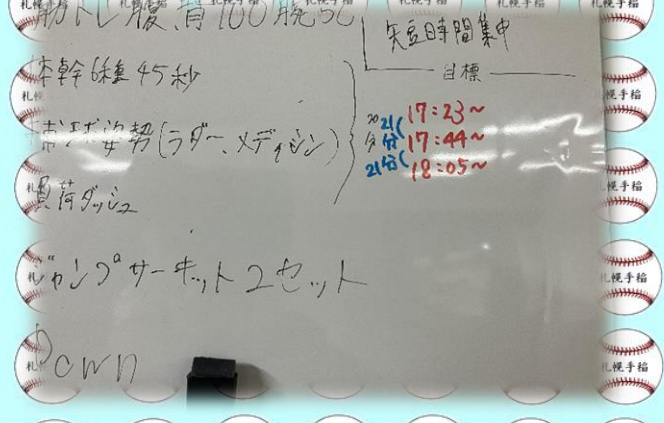 筋トレ 腹背100腕50
体幹6種45秒
姿勢(ラダー、メディシン)
負荷ダッシュ
ジャンプサーキット2セット
Down
短時間集中
目標
20分
21分
21分
17:23~
17:44~
18:05~
札幌手稲